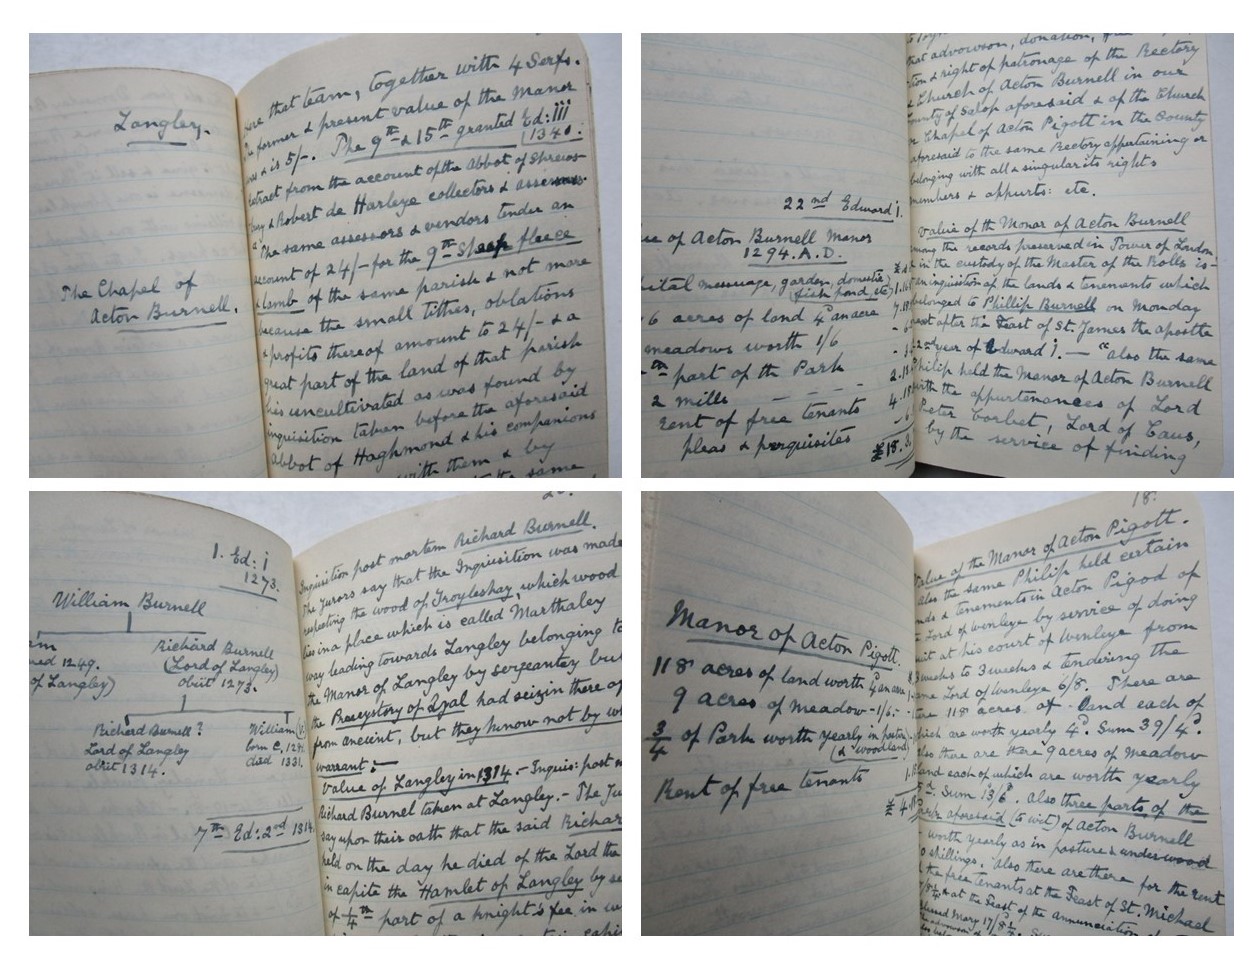 Langley.
The Chapel of
Acton Burnell.
that team, together with 4 Serfs.
former & present value of the Manor
& is 5/-. The 9th & 15th granted Ed: iii
(1340.
extract from the account of the Abbot of Shrews-
& Robert de Harleye collectors & assessors.
"The same assessors & vendors tender an
account of 24/- for the 9th sheep fleece
& lamb of the same parish & not more
because the small tithes, oblations
& profits thereof amount to 24/- & a
great part of the land of that parish
uncultivated as was found by
inquisition taken before the aforesaid
Abbot of Haghmond & his companions
with them & by
the same
22nd Edward i.
of Acton Burnell Manor
1294. A.D.
messuage, garden, domestic
fish pond, etc)
6 acres of land 4d an acre
meadows worth 1/6
part of the Park
2 mills
Rent of free tenants
pleas & perquisites
£18.
that advowson, donation,
& right of patronage of the Rectory
& Church of Acton Burnell in our
County of Salop aforesaid & of the Church
or Chapel of Acton Pigott in the County
aforesaid to the same Rectory appertaining or
belonging with all & singular its rights
members & appurts: etc.
Value of th Manor of Acton Burnell
among the records preserved in Tower of London
in the custody of the Master of the Rolls is -
an inquisition of the lands & tenements which
belonged to Phillip Burnell on Monday
next after the Feast of St. James the apostle
22nd year of Edward i. — "also the same
Philip held the Manor of Acton Burnell
with the appurtenances of Lord
Peter Corbet, Lord of Caus,
by the service of finding
1. Ed: i
1273.
William Burnell
1249.
of Langley)
Richard Burnell
(Lord of Langley)
obiit 1273.
Richard Burnell?
Lord of Langley
obiit 1314.
William
born c.
died 1331.
7th Ed: 2nd 1314.
Inquisition post mortem Richard Burnell.
The Jurors say that the Inquisition was made
respecting the wood of Troyleshay, which wood
lies in a place which is called Marthaley
way leading towards Langley belonging to
the Manor of Langley by sergeantey but
the Preseystory of Lyal had seizin there of
from ancient, but they know not by w
warrant:-
Value of Langley in 1314. - Inquis: post m
Richard Burnel taken at Langley. - The Ju
say upon their oath that the said Richar
held on the day he died of the Lord the
in capite the Hamlet of Langley by se
of 1/4th part of a knight's fee, in
Manor of Acton Pigott.
118 acres of land worth 4d an acre
9 acres of meadow - 1/6. -
3/4 of Park worth yearly in pasture
(& woodland)
Rent of free tenants
£4.
18.
Value of the Manor of Acton Pigott.
also the same Philip held certain
lands & tenements in Acton Pigod of
Lord of Wenleye by service of doing
suit at his court of Wenleye from
3 weeks to 3 weeks & tendering the
same Lord of Wenleye 6/8. There are
there 118 acres of land each of
which are worth yearly 4d. Sum 39/4d.
also there are there 9 acres of meadow
land each of which are worth yearly
Sum 13/6d. Also three parts of the
Park aforesaid (to wit) of Acton Burnell
worth yearly as in pasture & underwood
shillings. Also there are there for the rent
the free tenants at the Feast of St. Michael
at the Feast of the annunciation of
blessed Mary 17/8